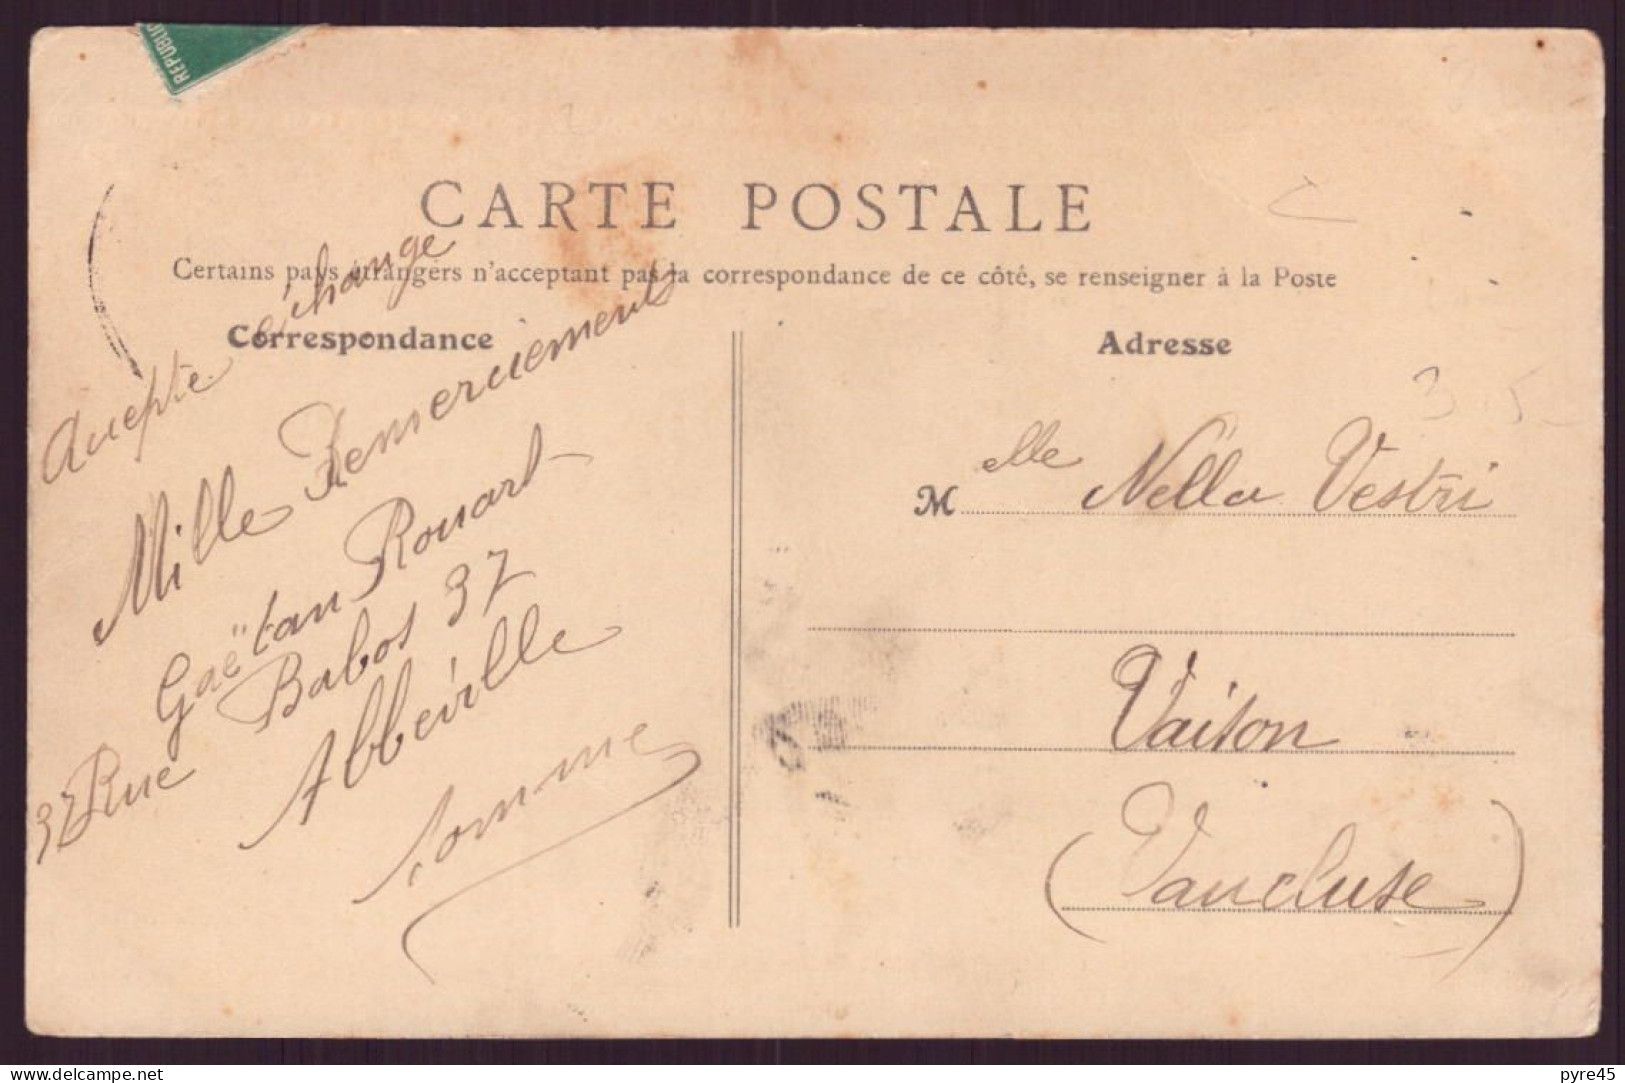 REPUBLIQ
CARTE POSTALE
Certains pays étrangers n'acceptant pas la correspondance de ce côté, se renseigner à la Poste
Correspondance
Accepte échange
Mille Remerciements
Gaëtan Rouart
37 Rue Babos 37
Abbeville
Somme
Adresse
Melle Nella Vestri
Vaison
(Vaucluse)
pyre45